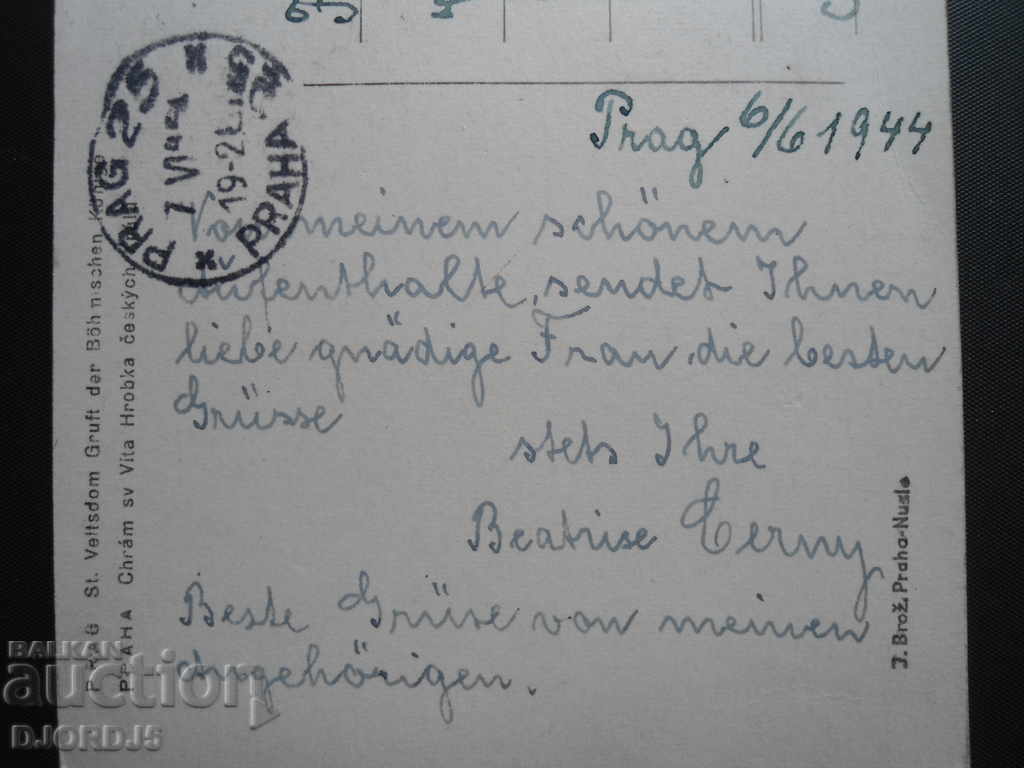 Prag 6/6 1944
Von meinem schönem
Aufenthalte, sendet Ihnen
liebe gnädige Frau, die besten
Grüsse
stets Ihre
Beatrise Cerny
Beste Grüse von meinen
Angehörigen.
* PRAG 25 * PRAHA 25
7 VI 44
19-21
PRAG St. Veitsdom Gruft der Böhmischen
PRAHA Chrám sv Víta Hrobka českých
J. Brož, Praha-Nusle
BALKAN
auction
DJORDJ5